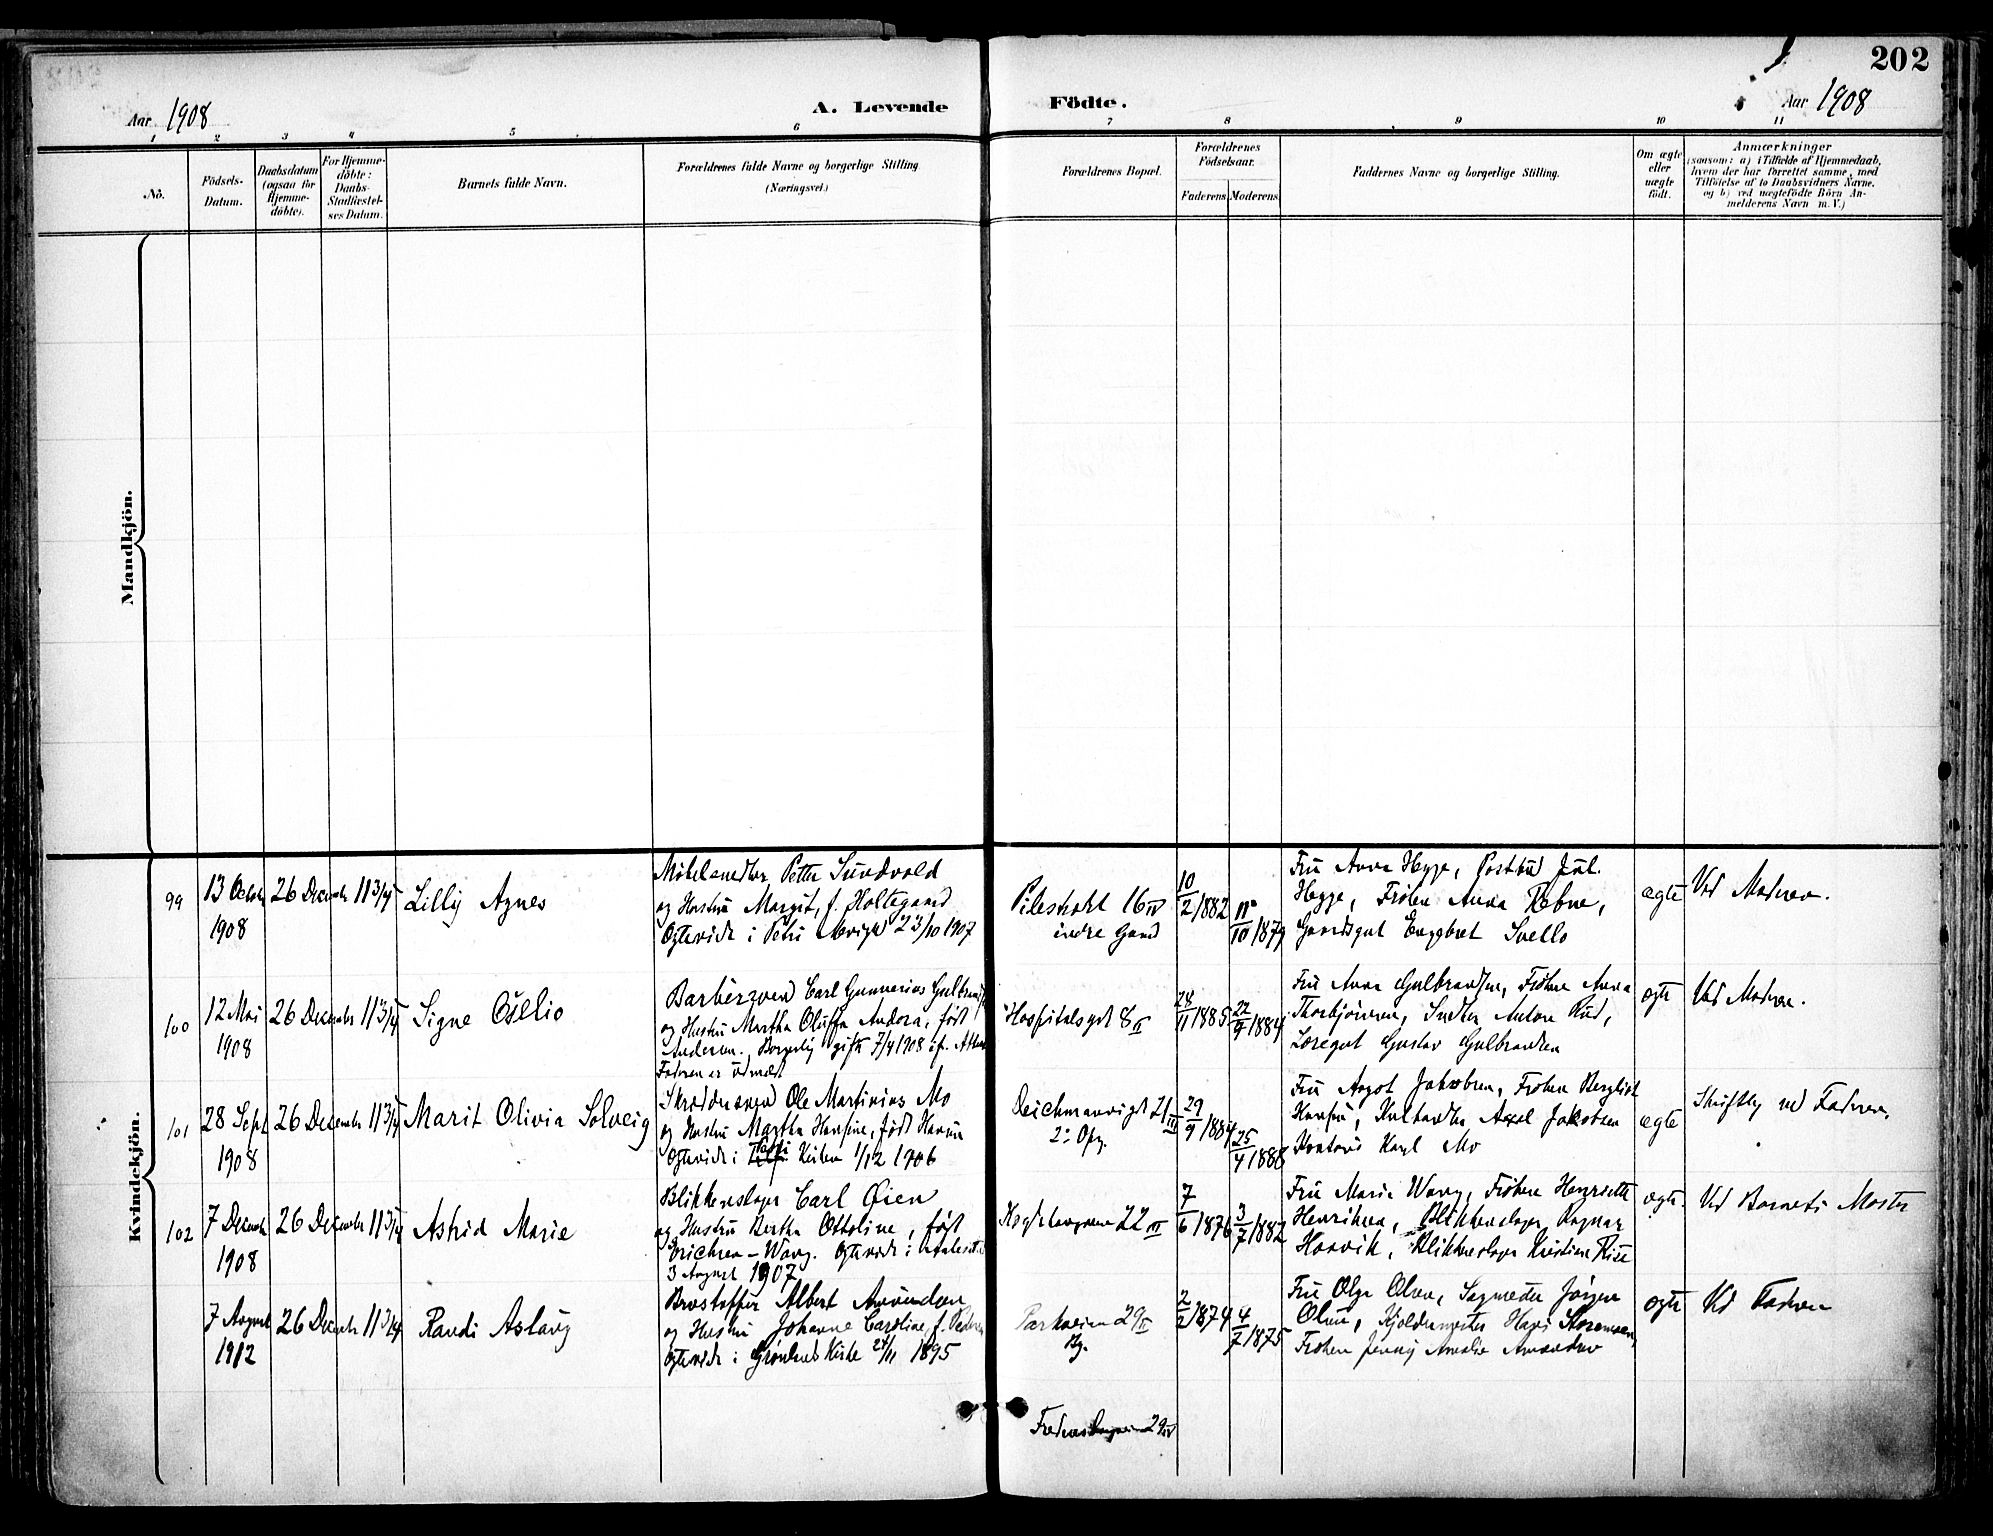 202
Aar 1908
A. Levende
Födte.
Aar 1908
1 2 3 4 5 6 7 8 9 10 11
No.
Födsels-
Datum.
Daabsdatum
(ogsaa for
Hjemme-
döbte).
For Hjemme-
döbte:
Daabs-
Stadfæstel-
ses Datum.
Barnets fulde Navn.
Forældrenes fulde Navne og borgerlige Stilling
(Næringsvei.)
Forældrenes Bopæl.
Forældrenes
Födselsaar.
Faderens
Moderens
Faddernes Navne og borgerlige Stilling.
Om ægte
eller
uægte
födt.
Anmærkninger
(saasom: a) i Tilfælde af Hjemmedaab,
hvem der har forrettet samme, med
Tilföielse af to Daabsvidners Navne.
og b) ved uægtefödte Börn An-
melderens Navn m. V.)
Mandkjön.
Kvindekjön.
99
13 Octob
1908
26 Decemb 11 3/4
Lilly Agnes
Møbelsnedker Petter Sundvold
og Hustru Margit, f. Holtegaard
Ogteviede i Petri 23/10 1907
Pilestrædet 16 IV
indre Gaard
10/2 1882
11/10 1879
Fru Anna Hegge, Postbud Jul.
Hegge, Frøken Anna Rebne,
Gaardsgut Engebret Svello
ægte
Ved Moderen.
100
12 Mai
1908
26 December 11 3/4
Signe Otelio
Barbersvend Carl Gunnerius Gulbrands
og Hustru Martha Oluffa Andora, født
Andersen. Borgerlig gift 7/4 1908 if. Attest
Faderen er udmeldt
Hospitalsgt 8 II
28/11 1885
22/9 1884
Fru Anna Gulbrandsen, Frøken Anna
Thorbjørnsen, Snedker Anton Rud,
Læregut Gustav Gulbrandsen
ægte
Ved Moderen.
101
28 Sept
1908
26 December 11 3/4
Marit Olivia Solveig
Skræddersvend Ole Martinius Mo
og Hustru Martha Hansine, født
Ogteviede i Petri Kirken 1/12 1906
Deichmansgt 21 III
2. Opg.
29/9 1884
25/4 1888
Fru Aagot Jakobsen, Frøken Bergliot
Axel Jakobsen
Kontorist Karl Mo
ægte
Skriftlig ved Faderen.
102
7 Decemb
1908
26 December 11 3/4
Astrid Marie
Blikkenslager Carl Øien
og Hustru Bertha Ottoline, født
Erichsen-Waag. Ogteviede i Aalesund
3 August 1907
22 III
7/6 1876
3/7 1882
Fru Marie Waag, Frøken Henriette
Henriksen, Blikkenslager Ragnar
Blikkenslager Kristian Riise
ægte
Ved Barnets Moster
7 August
1912
26 Decemb 11 3/4
Randi Aslaug
Albert Amundsen
og Hustru Johanne Caroline, f. Pedersen
Ogteviede i Grønlands Kirke 24/11 1895
Parkveien 29 II
Bg.
2/2 1874
4/7 1875
Fru Olga Olsen, Sagmester Jørgen
Olsen, Kjeldermester Hans Sørensen,
Frøken Jenny Amalie Amundsen
ægte
Ved Faderen
29 IV